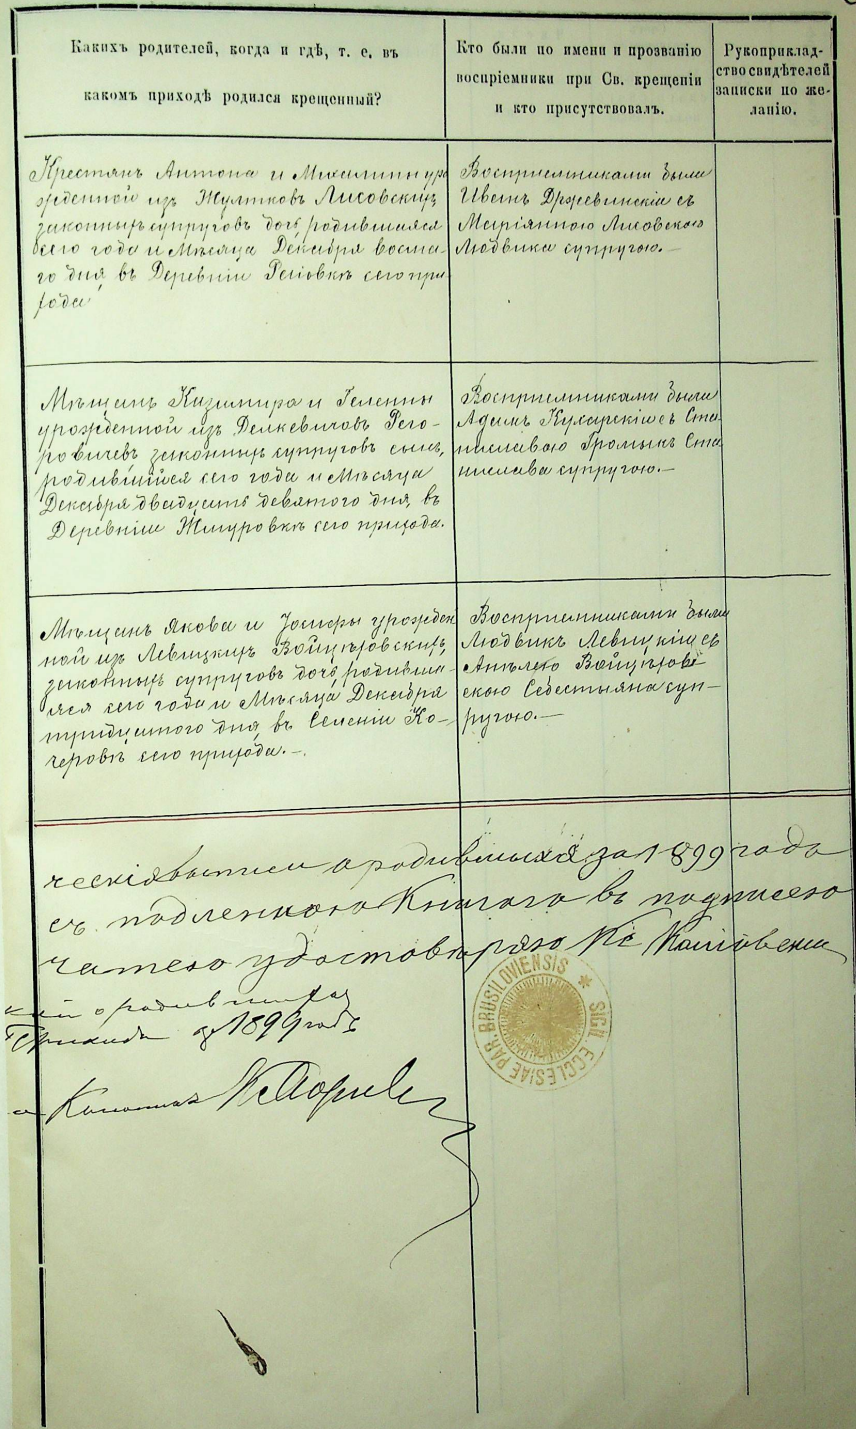 Какихъ родителей, когда и гдѣ, т. е. въ
какомъ приходѣ родился крещенный?
Кто были по имени и прозванію
воспріемники при Св. крещеніи
и кто присутствовалъ.
Рукоприклад-
ство свидѣтелей
записки по же-
ланію.
Крестянъ Антона и Михалины уро
жденной изъ Жултковъ Лисовскихъ
законныхъ супруговъ дочь, родившаяся
сего года и Мѣсяца Декабря восма-
го дня, въ Деревніи сего при
хода
Восприемниками были
Иванъ Држевинскій съ
Маріянною Лисовскою
Людвика супругою.—
Мѣщанъ Казимира и Гелены
урожденной изъ Делкевичовъ Рего-
ровичевъ законныхъ супруговъ сынъ,
родившійся сего года и Мѣсяца
Декабря двадцать девятого дня, въ
Деревніи Жмуровкѣ сего прихода.
Восприемниками были
Адамъ Кухарскій съ Ста-
ниславою Громыкъ Ста
нислава супругою.—
Мѣщанъ Якова и Јосифы урожден
ной изъ Левицкихъ Войцѣховскихъ,
законныхъ супруговъ дочь, родивша-
яся сего года и Мѣсяца Декабря
тридцатого дня, въ Селеніи Ко-
черовѣ сего прихода.—
Восприемниками были
Людвикъ Левицкій съ
Анѣлею Войцѣхов
скою Себестыяна суп-
ругою.—
ческія выписи о родившихся за 1899 года
съ подленною Книгою въ подписею
чатею удостовѣряю Кс
о родившихся
за 1899 годъ
SIGIL. ECCLESIAE PAR. BRUSILOVIENSIS